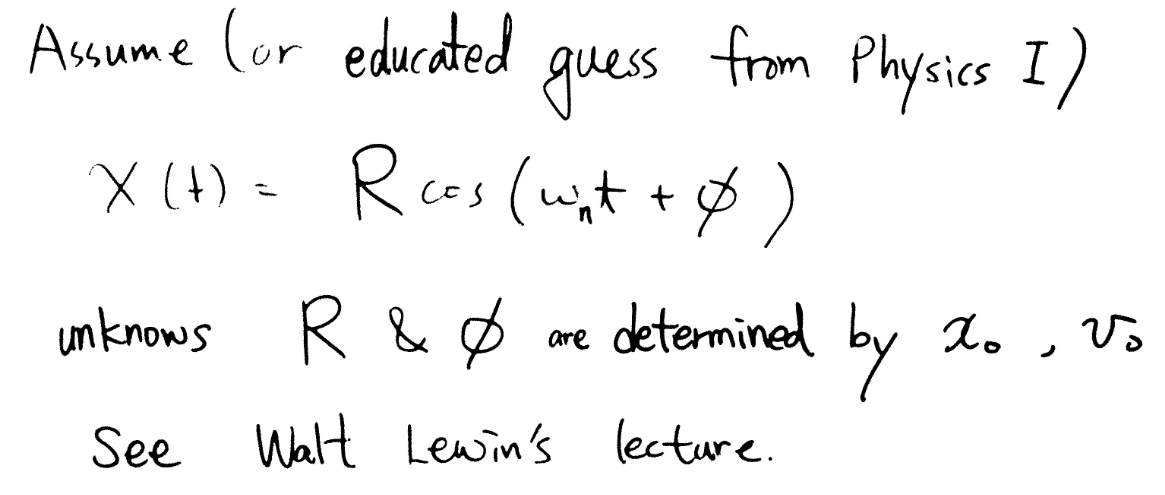 Assume (or educated guess from Physics I)
X(t) = R cos(ωₙt + φ)
unknows R & φ are determined by x₀, v₀
See Walt Lewin's lecture.